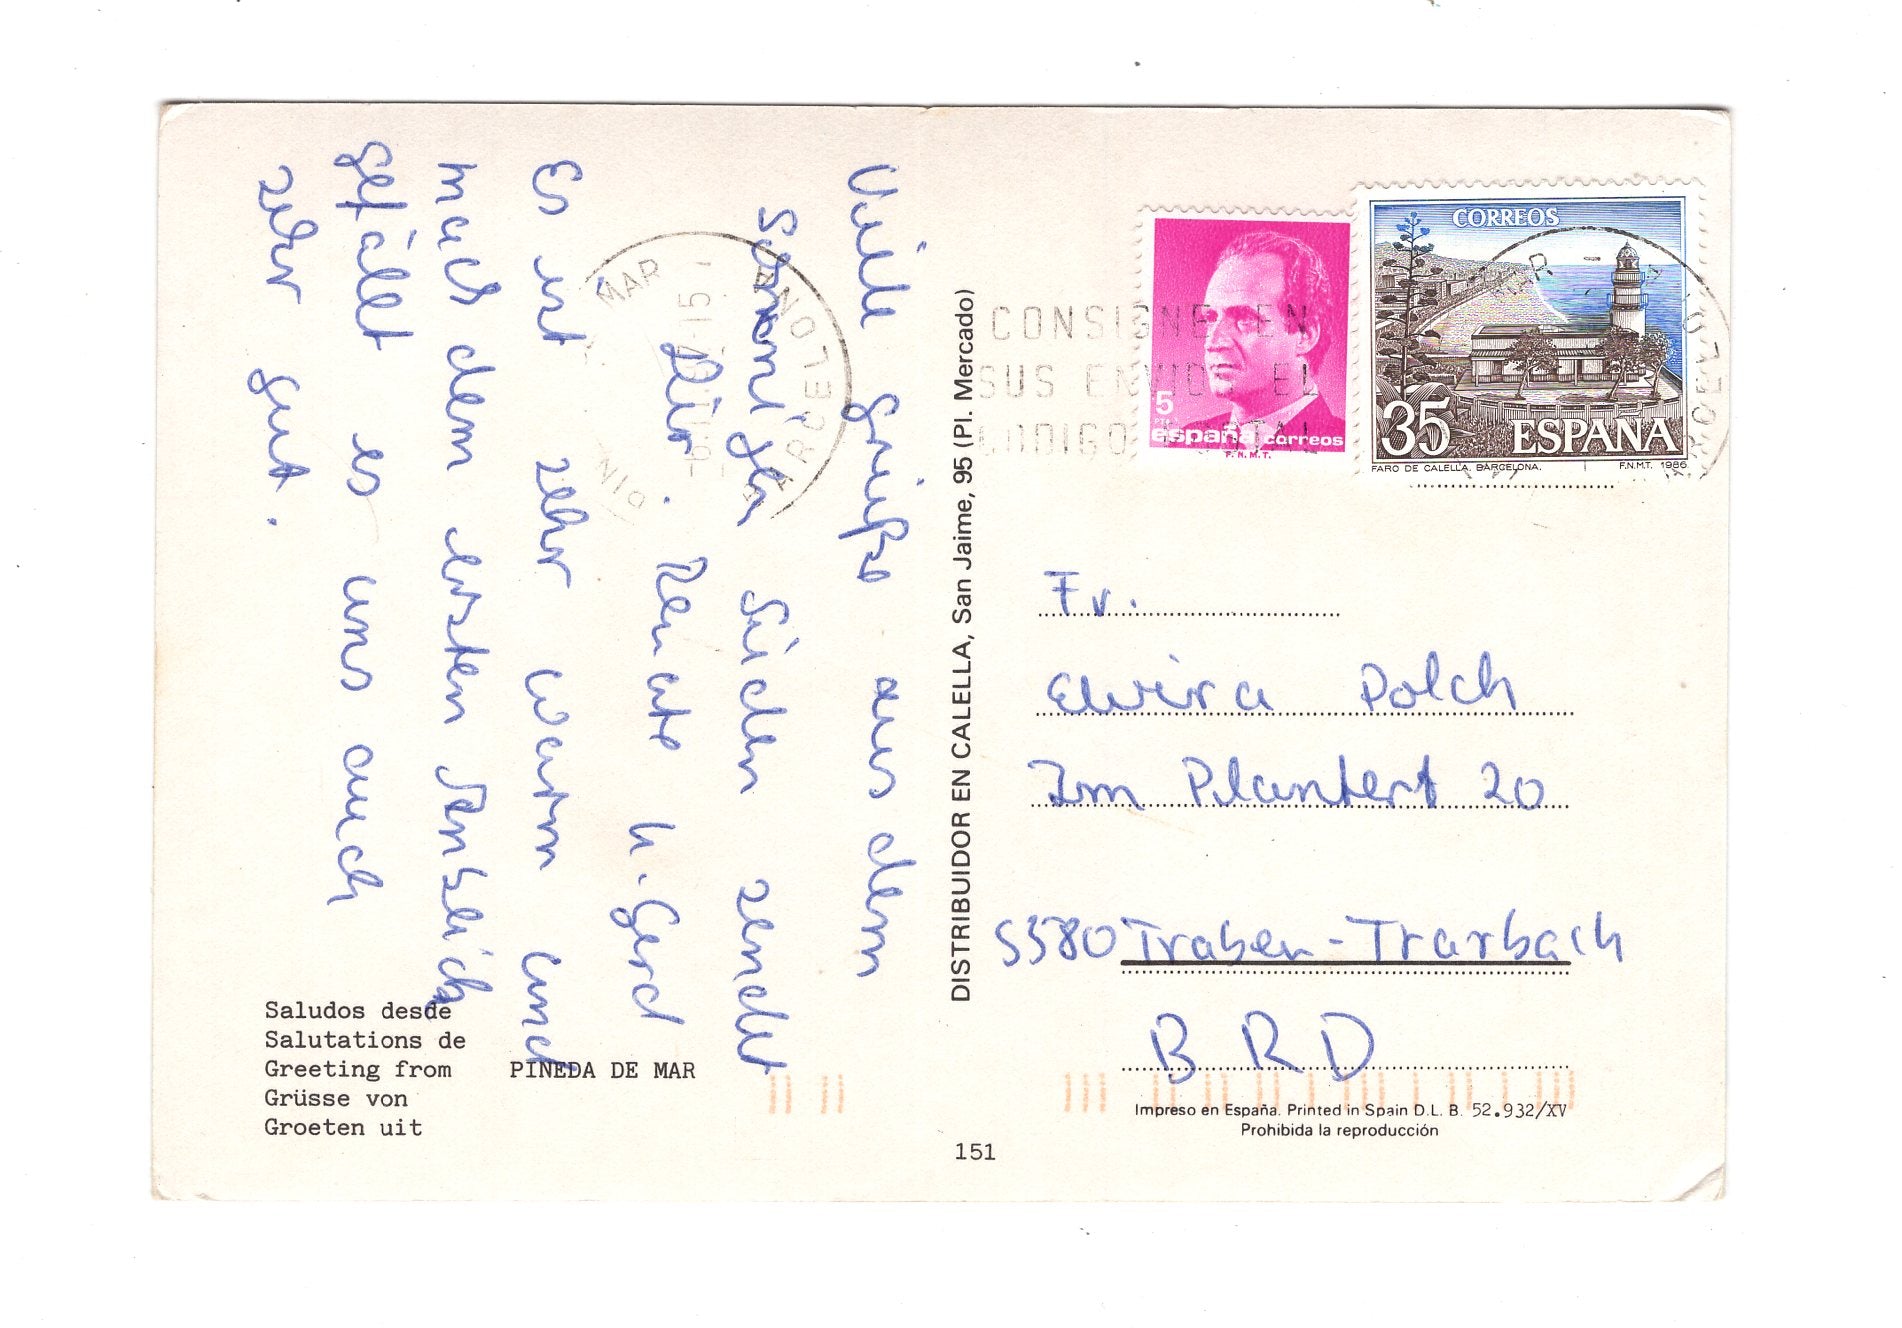 Viele Grüße aus dem
sonnigen Süden sendet
Dir Renate u. Gerd
Es ist sehr warm und
nach dem ersten Anblick
gefällt es uns auch
sehr gut.
MAR
BARCELONA
Saludos desde
Salutations de
Greeting from PINEDA DE MAR
Grüsse von
Groeten uit
DISTRIBUIDOR EN CALELLA, San Jaime, 95 (Pl. Mercado)
151
CONSIGNE EN
SUS ENVIOS EL
CODIGO POSTAL
5
PTA
españa correos
F.N.M.T.
CORREOS
35 ESPAÑA
FARO DE CALELLA. BARCELONA. F.N.M.T. 1986
Fr.
Elvira Polch
Im Plantert 20
5580 Traben-Trarbach
BRD
Impreso en España. Printed in Spain D.L. B. 52.932/XV
Prohibida la reproducción